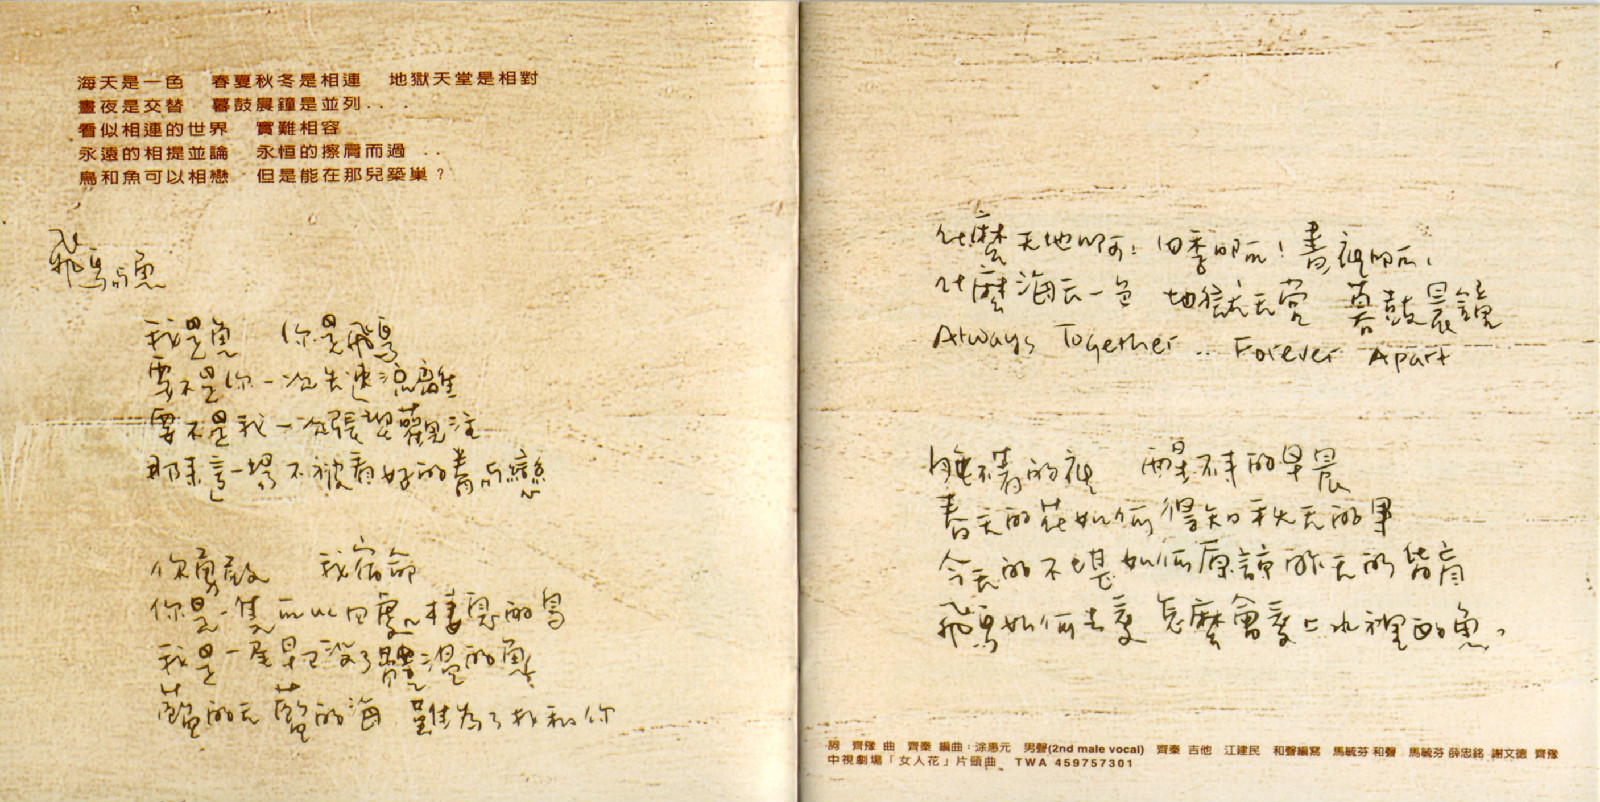 海天是一色　春夏秋冬是相連　地獄天堂是相對
晝夜是交替　暮鼓晨鐘是並列...
看似相連的世界　實難相容
永遠的相提並論　永恒的擦肩而過 ..
鳥和魚可以相戀　但是能在那兒築巢?
飛鳥与魚
我是魚　你是飛鳥
要不是你一次失速流離
要不是我一次張望觀注
那來這一場不被看好的眷与戀
你勇敢　我宿命
你是一隻可以四處棲息的鳥
我是一尾早已沒了體溫的魚
藍的天　藍的海　難為了我和你
什麼天地啊!四季啊!晝夜啊!
什麼海天一色　地獄天堂　暮鼓晨鐘
Always Together .. Forever Apart
睡不着的夜　醒不来的早晨
春天的花如何得知秋天的事
今天的不堪如何原諒昨天的昏盲
飛鳥如何去愛　怎麼會愛上水裡的魚。
詞　齊豫 曲　齊秦 編曲：涂惠元　男聲(2nd male vocal)　齊秦 吉他　江建民　和聲編寫　馬毓芬 和聲　馬毓芬 薛忠銘 謝文德 齊豫
中視劇場「女人花」片頭曲　TWA 459757301